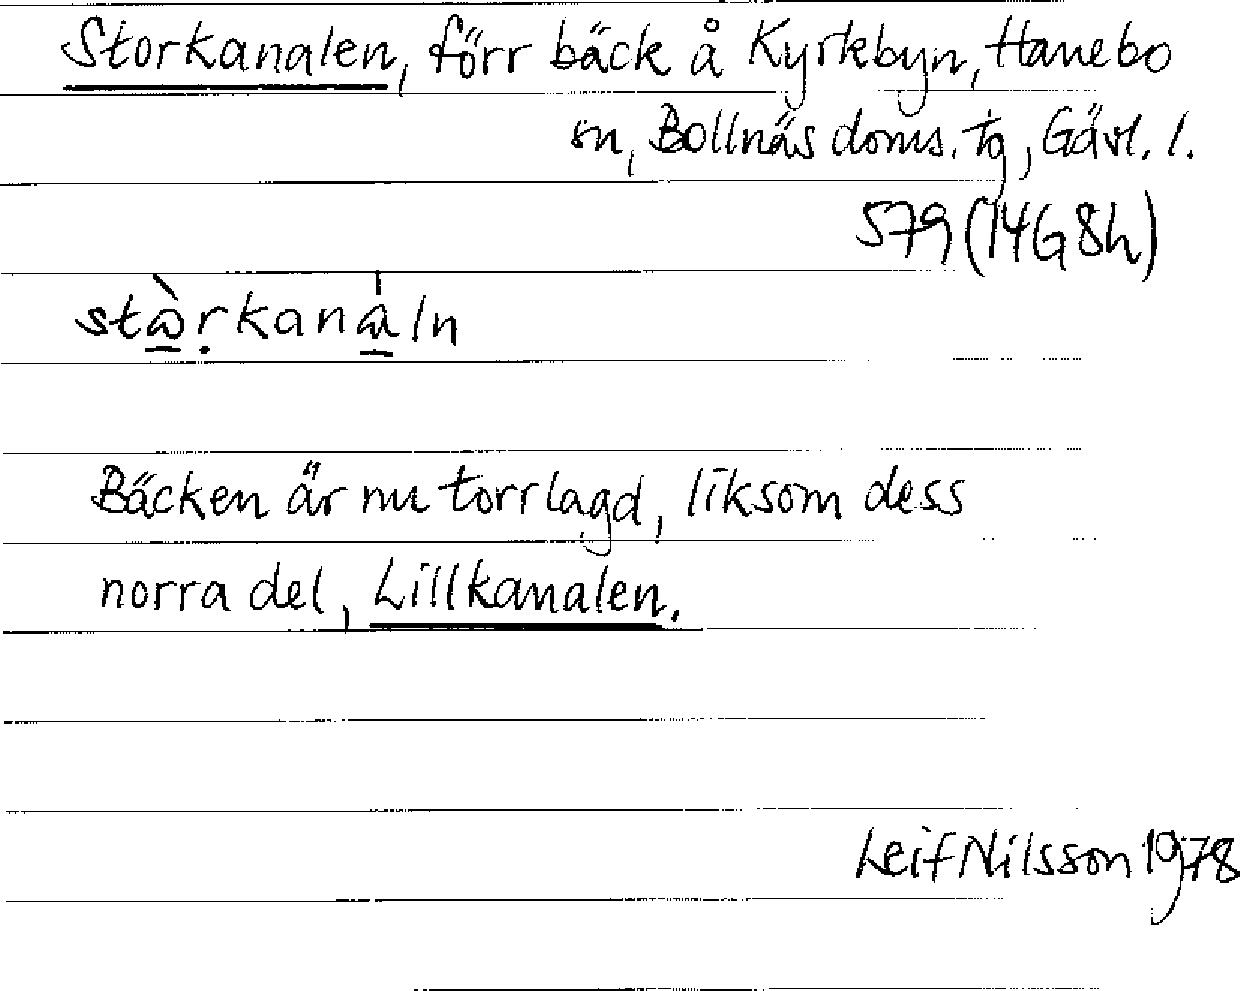 Storkanalen, förr bäck å Kyrkbyn, Hanebo
sn, Bollnäs doms. tg, Gävl. l.
579 (14G8h)
stὼṛkanα̍ln
Bäcken är nu torrlagd, liksom dess
norra del, Lillkanalen.
Leif Nilsson 1978